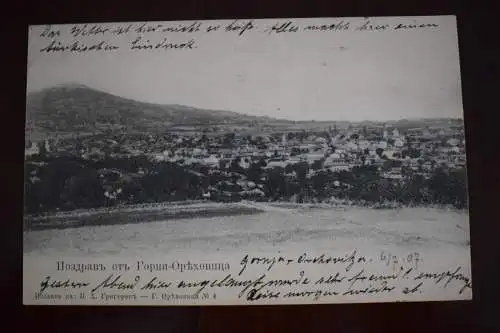 Das Wetter ist hier nicht so heiß. Alles macht hier einen
türkischen Eindruck.
Поздравъ отъ Горня-Орѣховица Gornja-Orechovitza. 6/7.07.
Gestern Abend hier angelangt, wurde sehr freundl. empfang
Reise morgen wieder ab
Издание на: П. Х. Григоровъ — Г. Орѣховица № 4